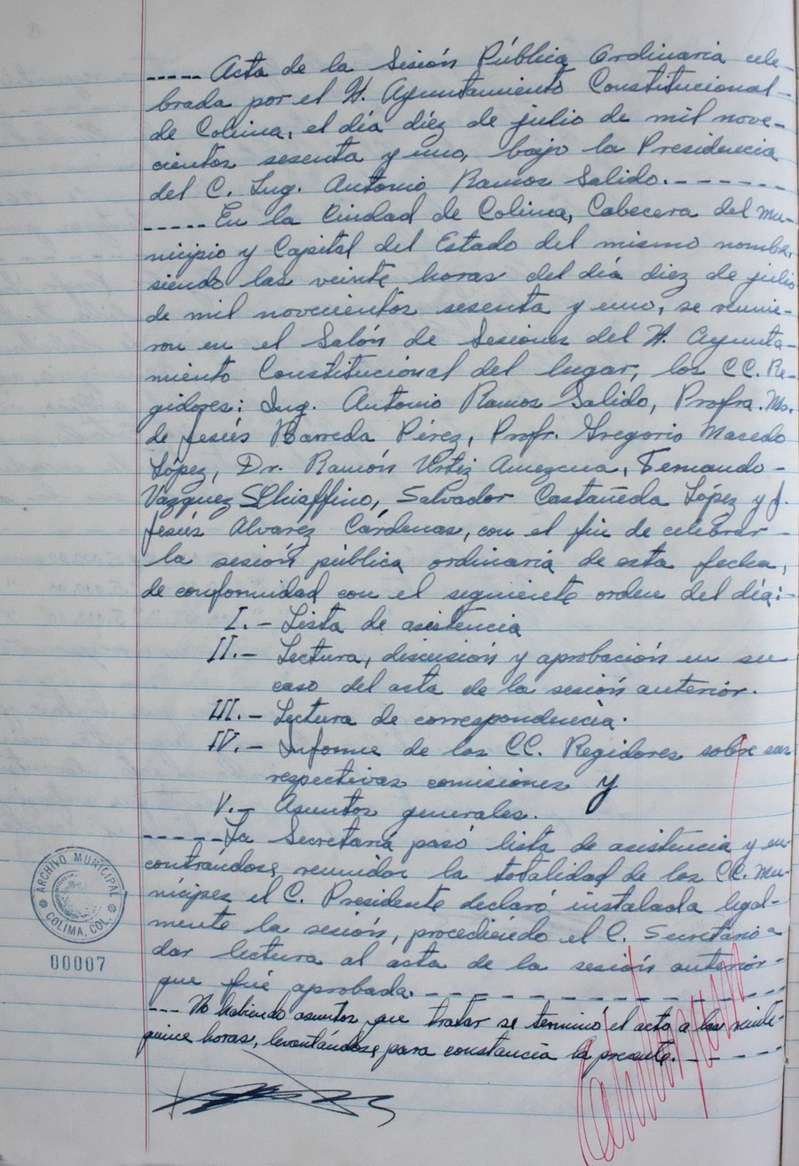 ----- Acta de la Sesión Pública Ordinaria cele-
brada por el H. Ayuntamiento Constitucional-
de Colima, el día diéz de julio de mil nove-
cientos sesenta y uno, bajo la Presidencia
del C. Ing. Antonio Ramos Salido.-------
----- En la Ciudad de Colima, Cabecera del Mu-
nicipio y Capital del Estado del mismo nombre,
siendo las veinte horas del día diez de julio
de mil novecientos sesenta y uno, se reunie-
ron en el Salón de Sesiones del H. Ayunta-
miento Constitucional del lugar, los CC. Re-
gidores: Ing. Antonio Ramos Salido, Profra. Ma.
de Jesús Barreda Pérez, Profr. Gregorio Macedo
López, Dr. Ramón Ortiz Amezcua, Fernando-
Vázquez Schiaffino, Salvador Castañeda López y J.
Jesús Alvaréz Cárdenas, con el fin de celebrar-
la sesión pública ordinaria de esta fecha,
de conformidad con el seguiente orden del día:-
I.- Lista de asistencia
II.- Lectura, discusión y aprobación en su
caso del acta de la sesión anterior.
III.- Lectura de correspondencia.
IV.- Informe de los CC. Regidores sobre sus
respectivas comisiones y
V.- Asuntos generales.
----- La Secretaria pasó lista de asistencia y en-
contrándose reunidos la totalidad de los CC. Mu-
nicipes el C. Presidente declaró instalada legal-
mente la sesión, procediendo el C. Secretario a
dar lectura al acta de la sesión anterior-
que fué aprobada.-----------
--- No habiendo asuntos que tratar se terminó el acto a las veinte
quince horas, levantándose para constancia la presente.-----
ARCHIVO MUNICIPAL
COLIMA, COL.
00007